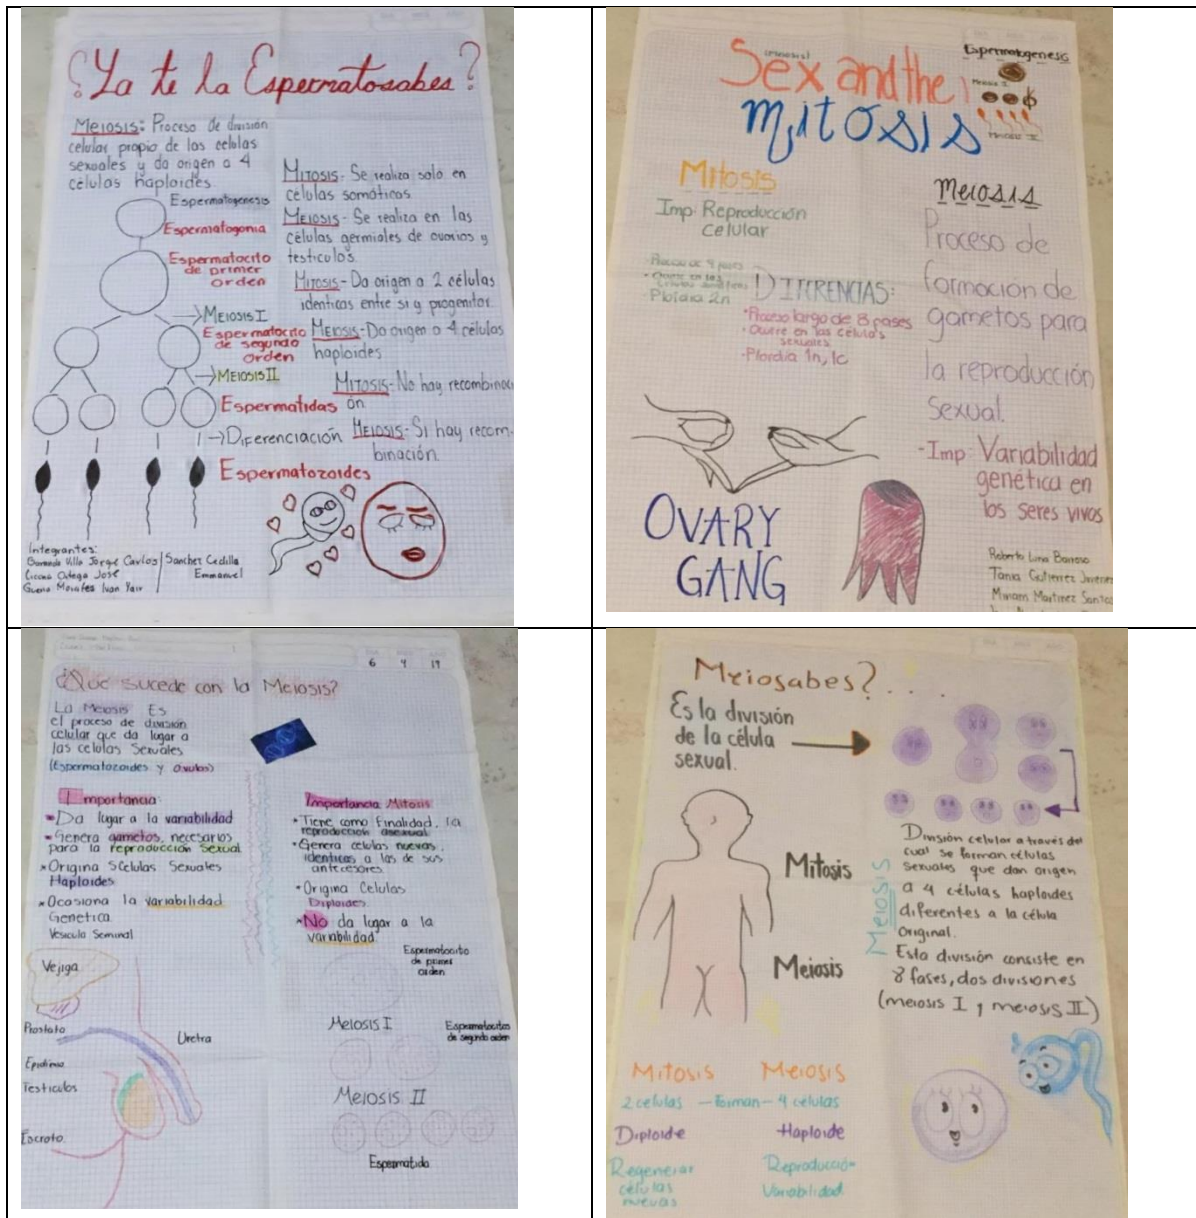 ¿Ya te la Espermatosabes?
Meiosis: Proceso de división
celular propio de las celulas
sexuales y da origen a 4
células haploides.
Espermatogenesis
Espermatogonia
Espermatocito
de primer
orden
→Meiosis I
Espermatocito
de segundo
orden
→MEIOSIS II
Espermatidas
→Diferenciación
Espermatozoides
Mitosis- Se realiza solo en
celulas somáticas.
Meiosis- Se realiza en las
células germiales de ovarios y
testiculos.
Mitosis- Da origen a 2 células
identicas entre si y progenitor.
Meiosis- Da origen a 4 células
haploides
Mitosis- No hay recombinaci
ón
Meiosis- Si hay recom-
binación.
Integrantes:
Villa Jorge Carlos
Ortega José
Morales Ivan Yair
Sanchez Cedillo
Emmanuel
(meiosis)
Sex and the
mitosis
Espermatogenesis
Meiosis I
Meiosis II
Mitosis
Imp: Reproducción
celular
• Proceso de 4 fases
• Ocurre en las
células
• Ploidia 2n
DIFERENCIAS:
• Proceso largo de 8 fases
• Ocurre en las células
sexuales
- Ploidia 1n, 1c
Meiosis
Proceso de
formacion de
gametos para
la reproducción
sexual.
- Imp: Variabilidad
genética en
los seres vivos
OVARY
GANG
Roberto Luna Barroso
Tania Gutierrez Jimenez
Miriam Martinez Santos
6 4 19
¿Que sucede con la Meiosis?
La Meiosis Es
el proceso de division
celular que da lugar a
las celulas Sexuales
(Espermatozoides y óvulos)
Importancia:
• Da lugar a la variabilidad
• Genera gametos, necesarios
para la reproducción Sexual
* Origina Células Sexuales
Haploides
* Ocasiona la variabilidad
Genetica.
Vesicula Seminal
Vejiga
Prostata
Uretra
Epididimo
Testiculos
Escroto
Importancia Mitosis
• Tiene como Finalidad, la
reproducción asexual
• Genera celulas nuevas,
identicas a las de sus
antecesores.
• Origina Celulas
Diploides.
* No da lugar a la
variabilidad
Espermatocito
de primer
orden
Meiosis I
Espermatocitos
de segundo orden
Meiosis II
Espermatida
Meiosabes?...
Es la división
de la célula
sexual.
Mitosis
Meiosis
MEIOSIS
División celular a través del
cual se forman células
sexuales que dan origen
a 4 células haploides
diferentes a la célula
original.
Esta división consiste en
8 fases, dos divisiones
(meiosis I y meiosis II)
Mitosis Meiosis
2 celulas — Forman — 4 celulas
Diploide Haploide
Regenerar
células
nuevas
Reproducción
Variabilidad.